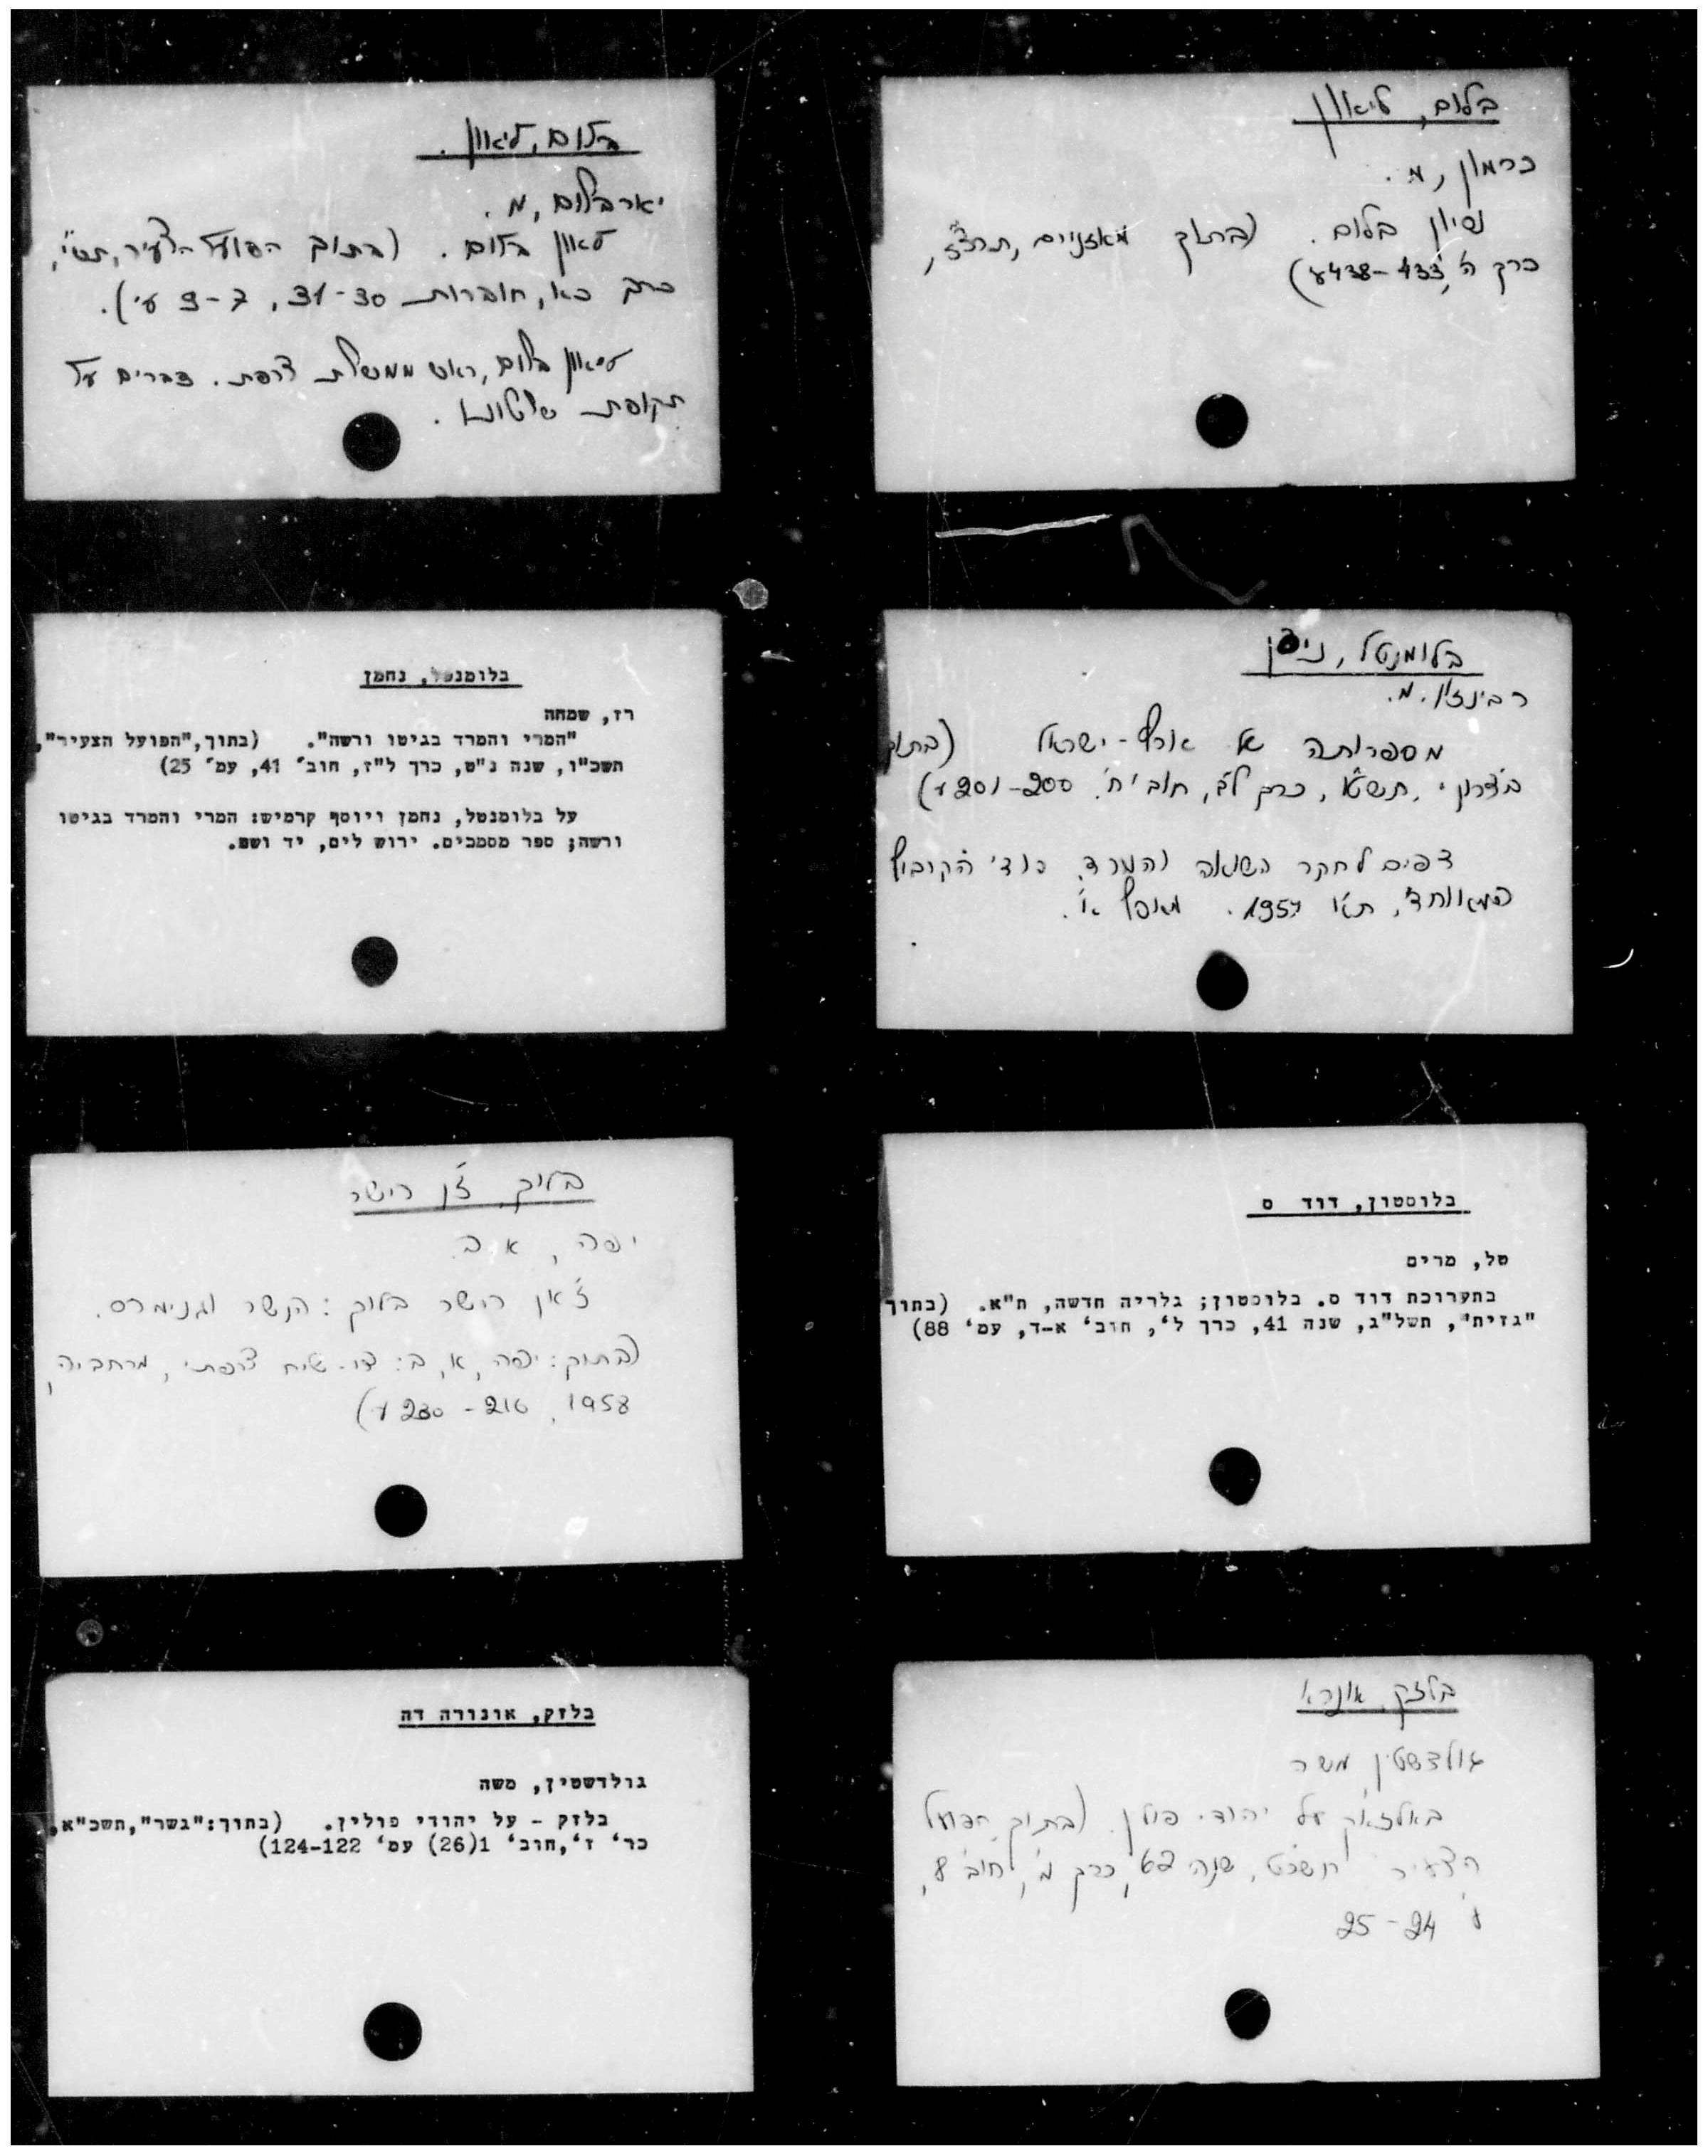 בלום, ליאון
כרמון, מ.
נסיון בלום. (בתוך מאזנים, תרצ"ז,
כרך ה', 433–438 ע')
בלום, ליאון.
יארבלום, מ.
לאון בלום. (בתוך הפועל הצעיר, תש"י,
כרך כא, חוברות 30–31, 7–9 ע').
ליאון בלום, ראש ממשלת צרפת. דברים על
תקופת שלטונו.
בלומנטל,
רבינזון. מ.
(בתוך
בצרון, כרך ל"ב, חוב' ח'. 200–201 ע')
דפים לחקר השואה והמרד.
המאוחד, ת"א 1957. מאסף א'.
בלומנטל, נחמן
רז, שמחה
"המרי והמרד בגיטו ורשה". (בתוך,"הפועל הצעיר",
תשכ"ו, שנה נ"ט, כרך ל"ז, חוב' 41, עמ' 25)
על בלומנטל, נחמן ויוסף קרמיש: המרי והמרד בגיטו
ורשה; ספר מסמכים. ירוש לים, יד ושם.
בלוסטון, דוד ס
טל, מרים
בתערוכת דוד ס. בלוסטון; גלריה חדשה, ת"א. (בתוך
"גזית", תשל"ג, שנה 41, כרך ל', חוב' א-ד, עמ' 88)
בלוק, ז'ן רישר
יפה, א ב.
ז'אן רישר בלוק: הנשר וגנימדס.
(בתוך: יפה, א, ב: דו-שיח צרפתי, מרחביה,
1958, 216–230 ע')
בלזק, אונרא
גולדשטין, משה
באלזאק על יהודי פולין. (בתוך, הפועל
הצעיר תשכ"ט, שנה 62, כרך מ', חוב' 8,
ע' 24–25
בלזק, אונורה דה
גולדשטיין, משה
בלזק - על יהודי פולין. (בתוך:"גשר",תשכ"א,
כר' ז',חוב' 1(26) עמ' 122–124)